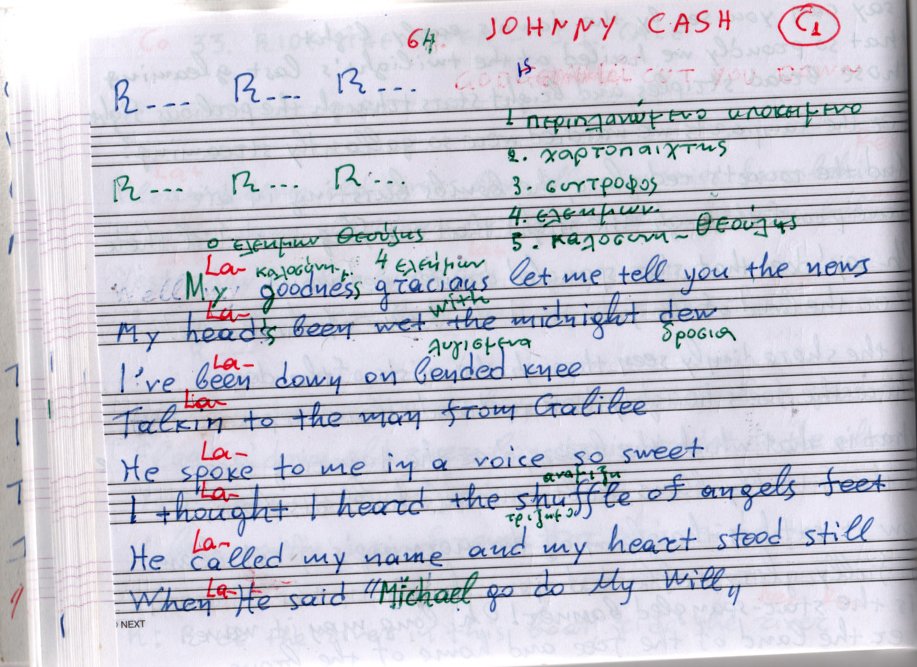 64 JOHNNY CASH C1
15
R--- R--- R---
1 περιπλανώμενο υποκείμενο
2. χαρτοπαιχτης
R--- R--- R---
3. συντροφος
4. ελεημων
ο ελεημων Θεούλης
5. καλοσυνη - Θεούλης
La- καλοσύνη 4 ελεήμων
My goodness gracious let me tell you the news
La- with
My head's been wet the midnight dew
λυγισμενα δροσια
La-
I've been down on bended knee
La-
Talkin to the man from Galilee
La-
He spoke to me in a voice so sweet
La- αναμιξη
I thought I heard the shuffle of angels feet
La-
He called my name and my heart stood still
La-
When He said "Michael go do My Will"
NEXT